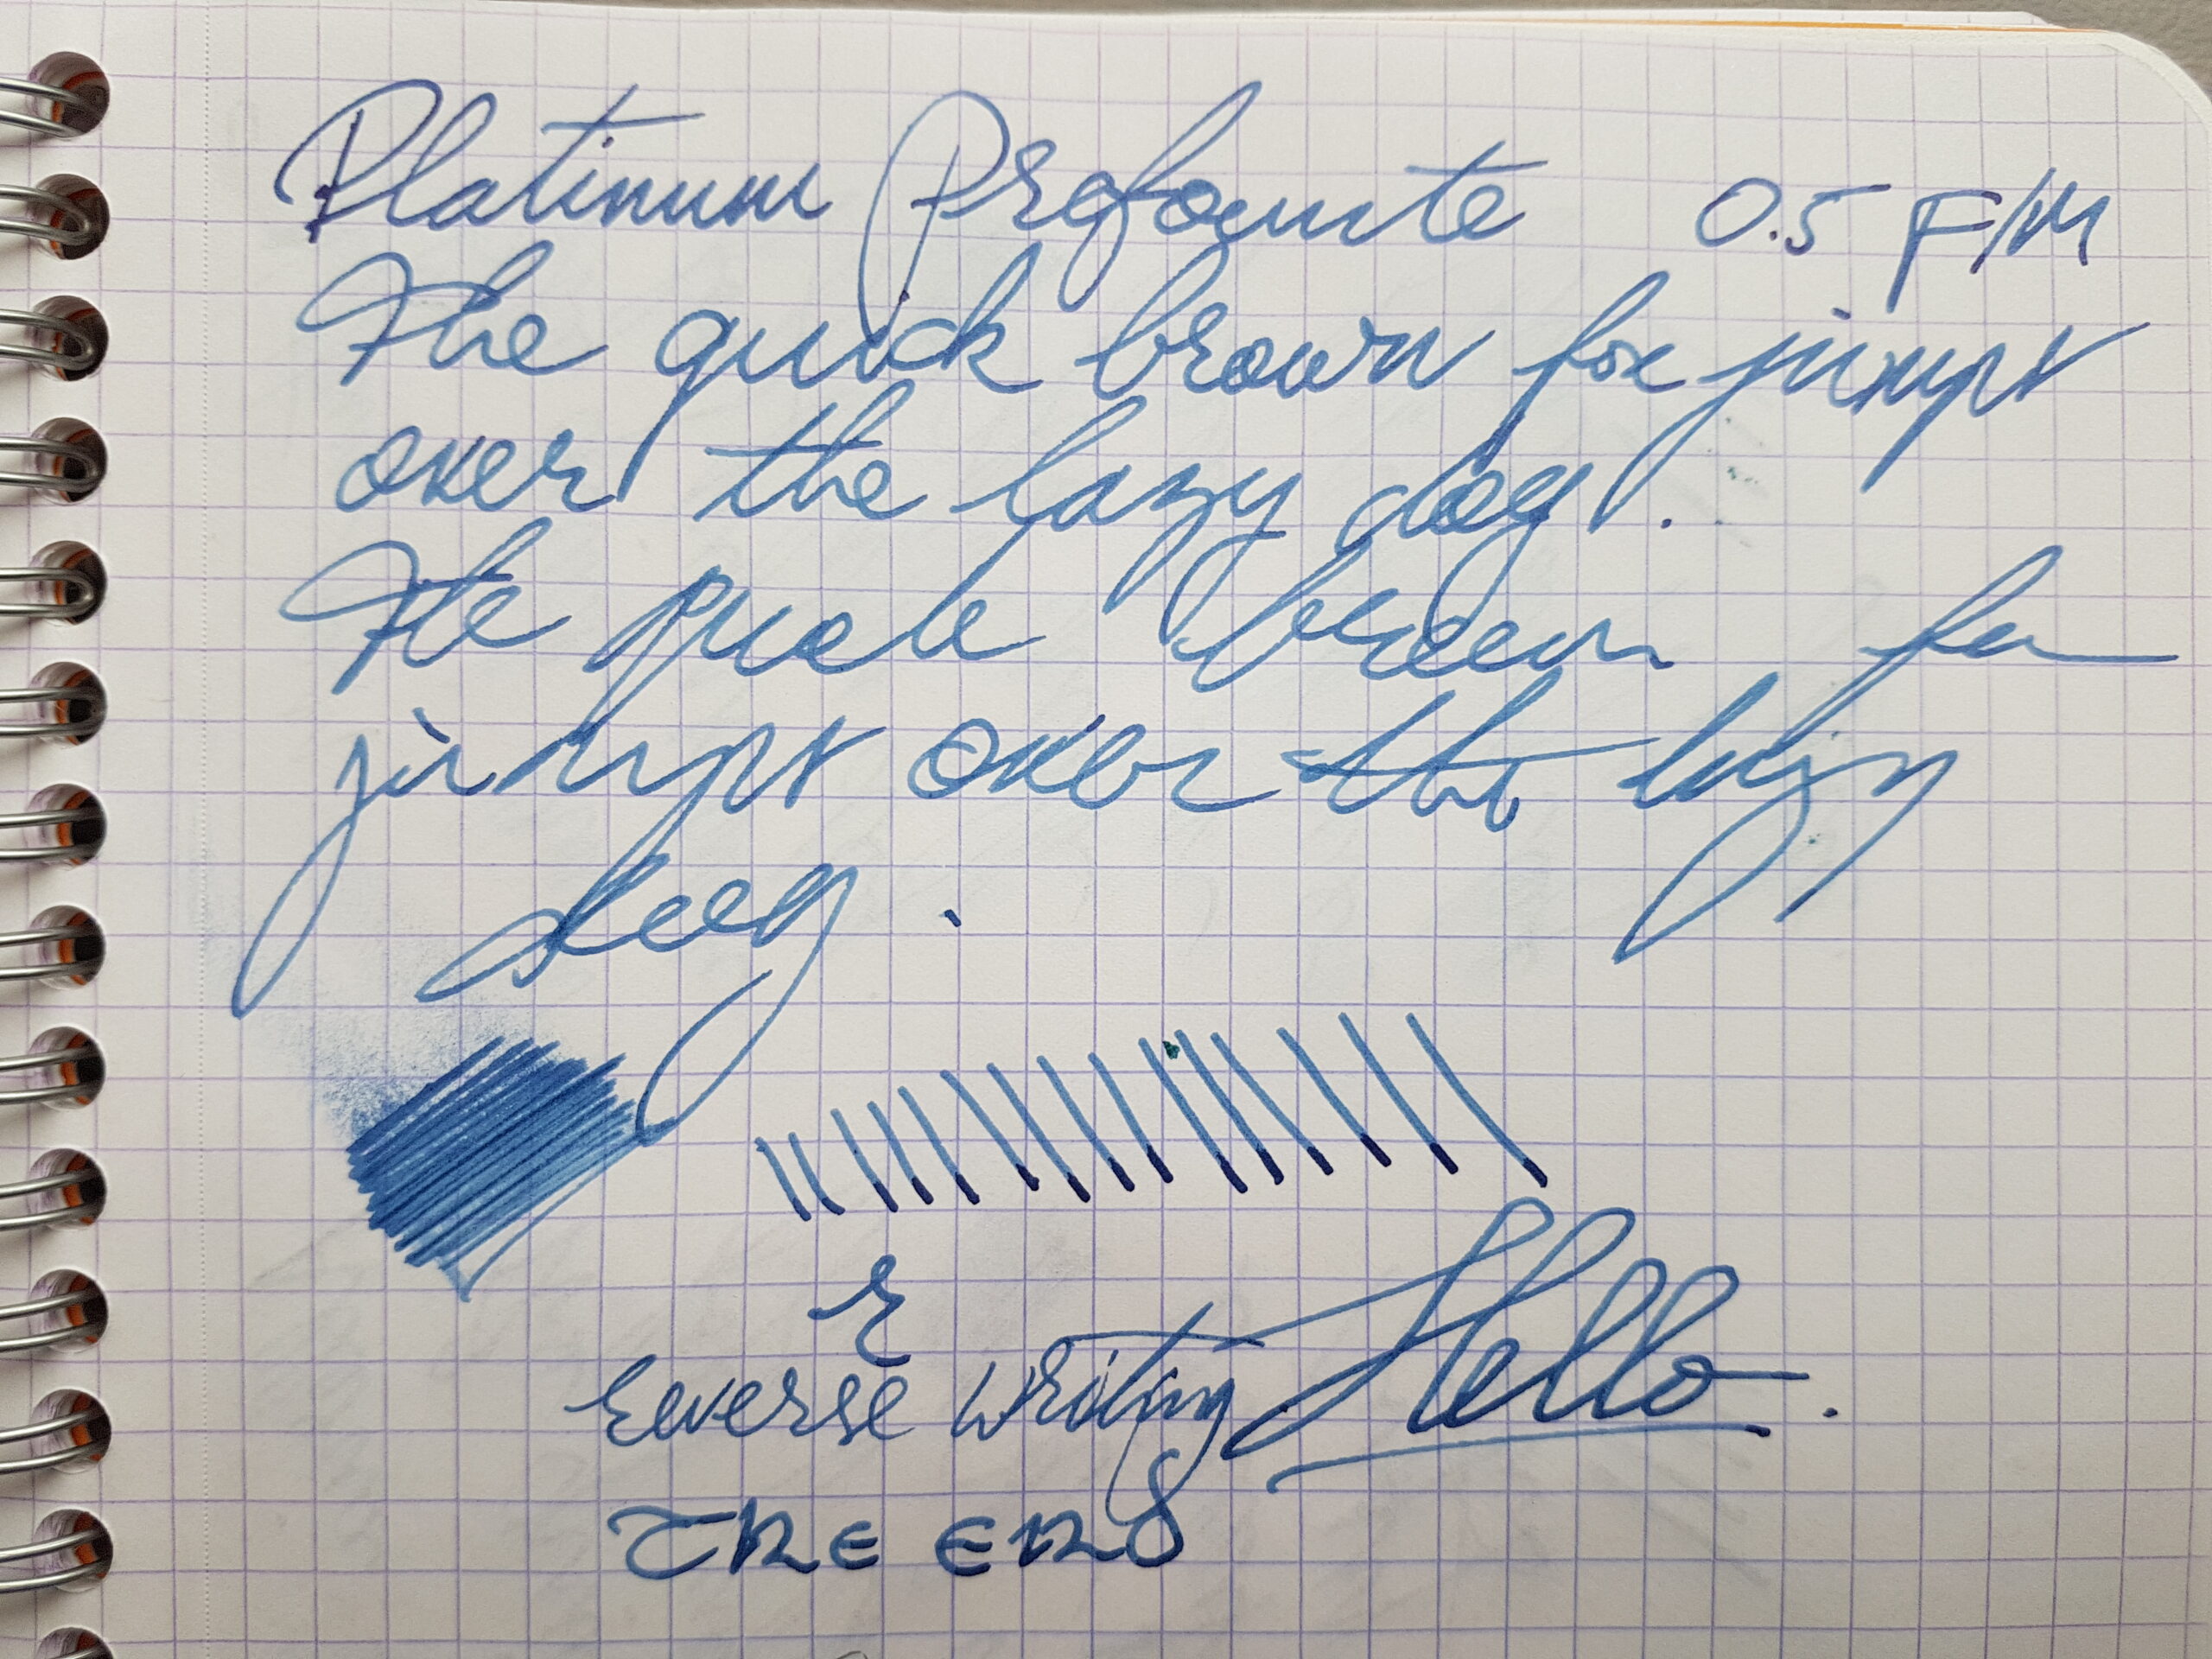 Platinum Prefounte 0.5 F/M
The quick brown fox jumps
over the lazy dog.
The quick brown fox
jumps over the lazy
dog.
r
Reverse writing Hello.
THE END